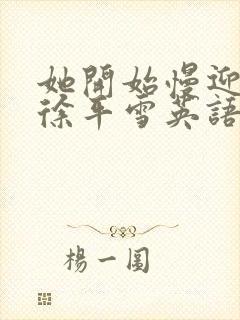 她開始慢迎
徐平雪英語
楊一圓